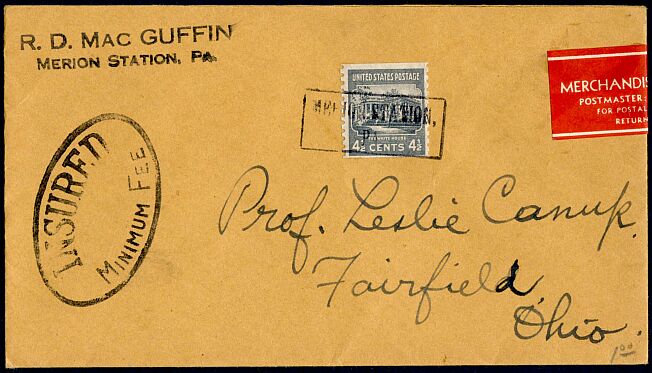 R. D. MAC GUFFIN
MERION STATION, PA.
UNITED STATES POSTAGE
MERION STATION,
PA.
THE WHITE HOUSE
4½ CENTS 4½
MERCHANDIS
POSTMASTER:
FOR POSTAL
RETURN
INSURED
MINIMUM FEE
Prof. Leslie Canup.
Fairfield
Ohio.
1.00